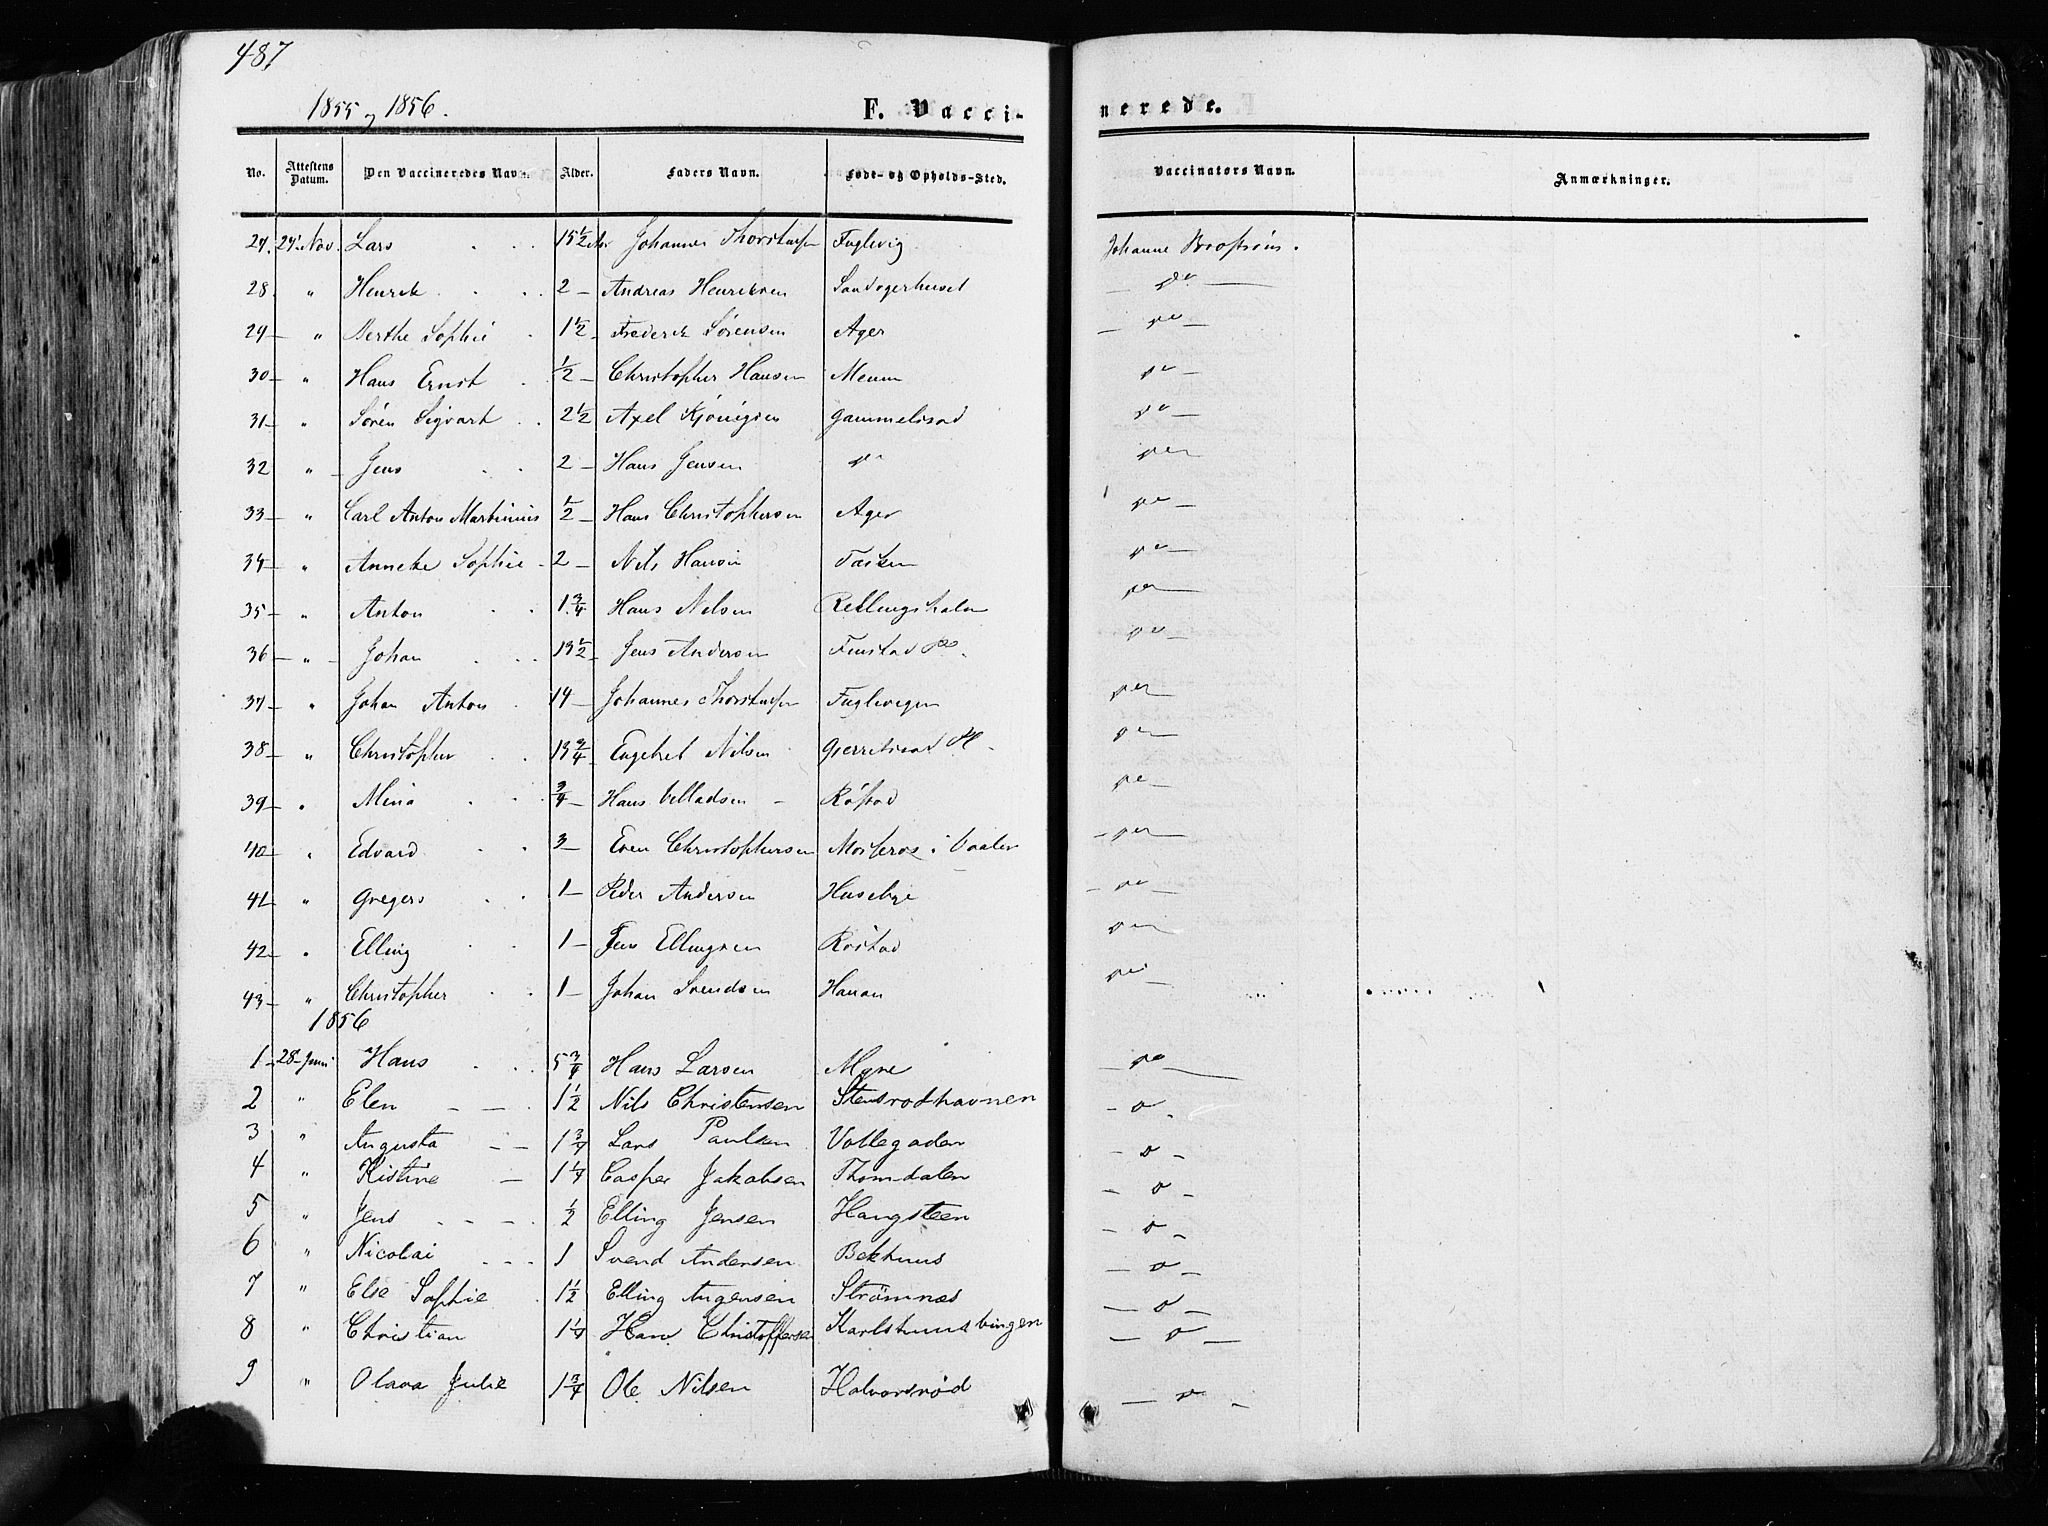 487
1855 og 1856.
F. Vaccinerede.
No. Attestens Datum. Den Vaccineredes Navn. Alder. Faders Navn. Føde- og Opholds-Sted. Vaccinators Navn. Anmærkninger.
27. 27 Nov. Lars 15 1/2 Aar Johannes Thorstensen Fuglevig Johanne
28. " Henrik 2 – Andreas Henriksen do
29 – " Berthe Sophie 1 1/2 Frederik Sørensen Ager do
30 – " Hans Ernst 1/2 – Christopher Hansen Meum do
31 – " Søren Sigvart 2 1/2 Axel do
32 " Jens 2 – Hans Jensen do do
33 – " Carl Anton Martinius 1/2 – Hans Christophersen Ager do
34 – " Anneke Sophie 2 – Nils Hansen Tasken do
35 – " Anton 1 3/4 Hans Nelsen do
36 – " – Johan 13 1/2 Jens Andersen Finstad do
37 – " Johan Anton 14 – Johannes Thorstensen Fuglevigen do
38 – " Christopher 13 3/4 Engebret Nilsen do
39 – " Mina 3/4 – Hans Velladsen – Røstad do
40 – " Edvard 3 – Even Christophersen i Vaaler do
41 – " Gregers 1 – Peder Andersen Husebye do
42 – " Elling 1 – Jens Ellingsen Røstad do
43 – " Christopher 1 – Johan Svendsen Hanan do
1856
1 – 28 – Juni Hans 5 3/4 Hans Larsen Myre do
2 " Elen 1 1/2 Nils Christensen Stensrodhavnen – o –
3 " Augusta 1 3/4 Lars Paulsen Vollegaden – o –
4 " Kistine 1 1/4 Casper Jakobsen Thomdalen – o –
5 " Jens 1/2 Elling Jensen Haugsteen – o –
6 " Nicolai 1 Svend Andersen Bekhuus – o –
7 " Else Sophie 1 1/2 Elling Angensen Strømnæs – o –
8 " Christian 1 1/4 Hans Christoffersen Karlshuusbingen – o –
9 " Olava Julie 1 3/4 Ole Nilsen Halvorsrød – o –